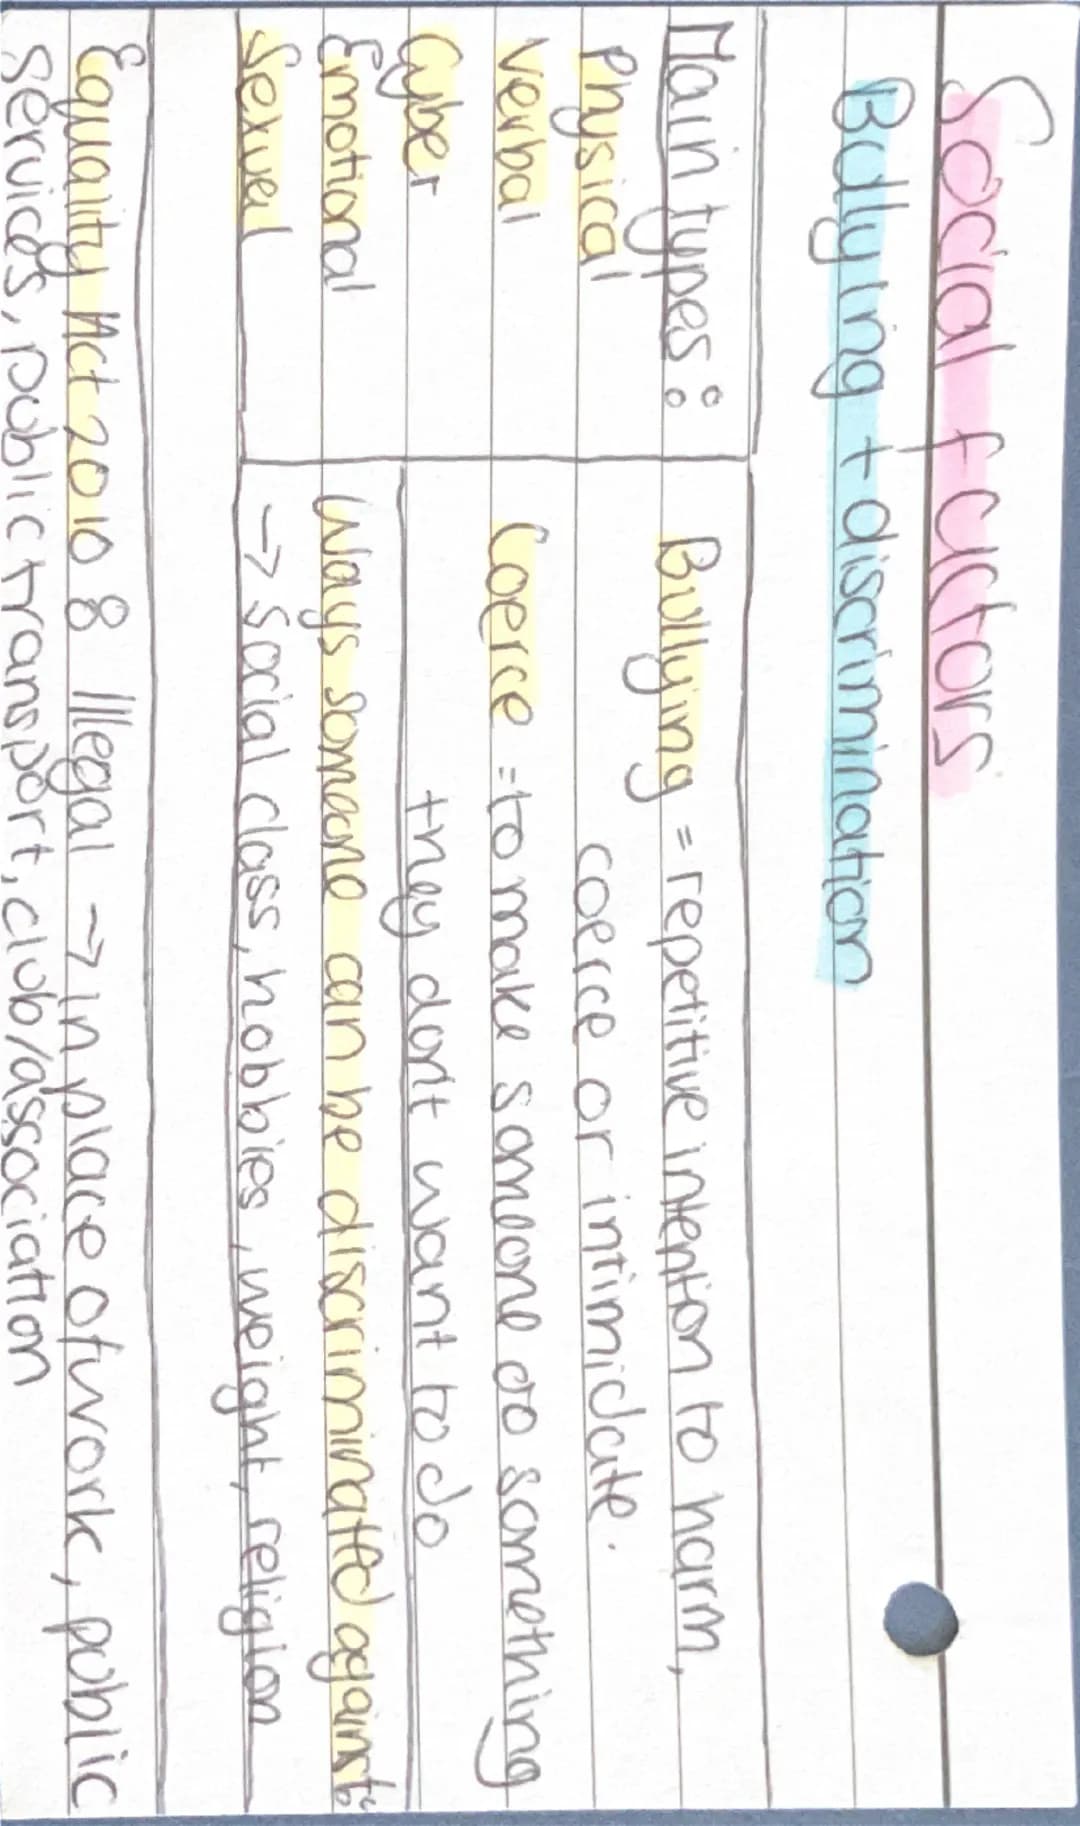 Social factors
Bullying + discrimination
Main types:
Physical
Verbal
Cyber
Emotional
Sexual
Bullying = repetitive intention to harm,
coerce or intimidate.
Coerce = to make someone do something
they don't want to do
Ways someone can be discriminated against:
→ Social class, hobbies, weight, religion
Equality Act 2010: Illegal → in place of work, public
services, public transport, club/association